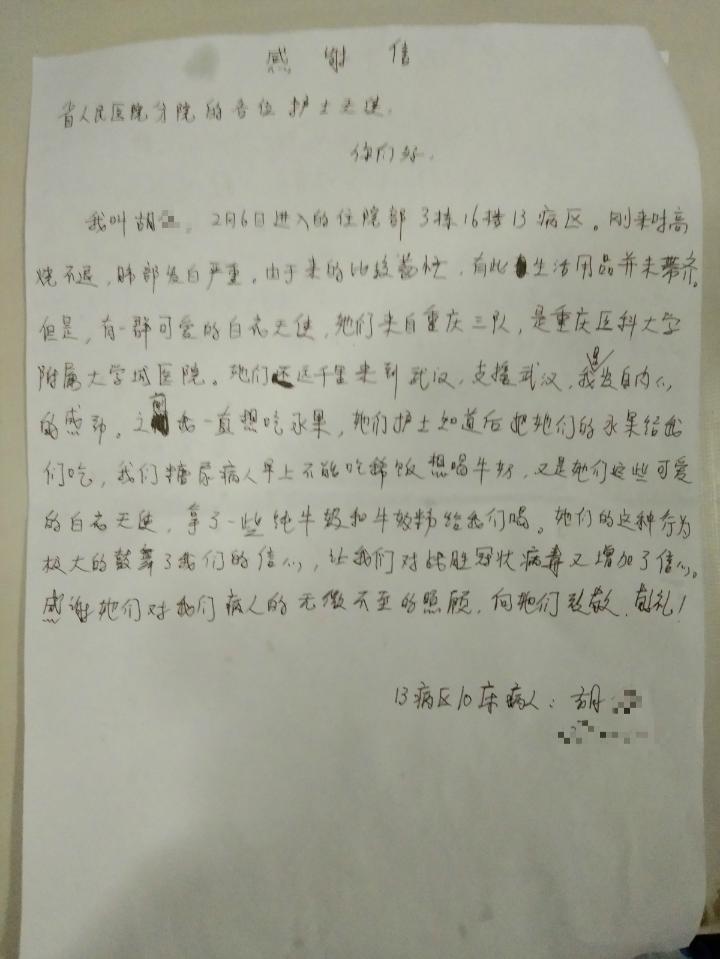 感谢信
省人民医院分院的各位护士天使,
你们好.
我叫胡 , 2月6日进入的住院部3栋16楼13病区。刚来时高
烧不退,肺部发白严重。由于来的比较匆忙,有些生活用品并未带齐。
但是,有一群可爱的白衣天使,她们来自重庆三队,是重庆医科大学
附属大学城医院。她们还远千里来到武汉,支援武汉,我是发自内心
的感动。之间我一直想吃水果,她们护士知道后把她们的水果给我
们吃,我们糖尿病人早上不能吃稀饭想喝牛奶,又是她们这些可爱
的白衣天使,拿了一些纯牛奶和牛奶粉给我们喝。她们的这种行为
极大的鼓舞了我们的信心,让我们对战胜冠状病毒又增加了信心。
感谢她们对我们病人的无微不至的照顾,向她们致敬,敬礼!
13病区10床病人:胡